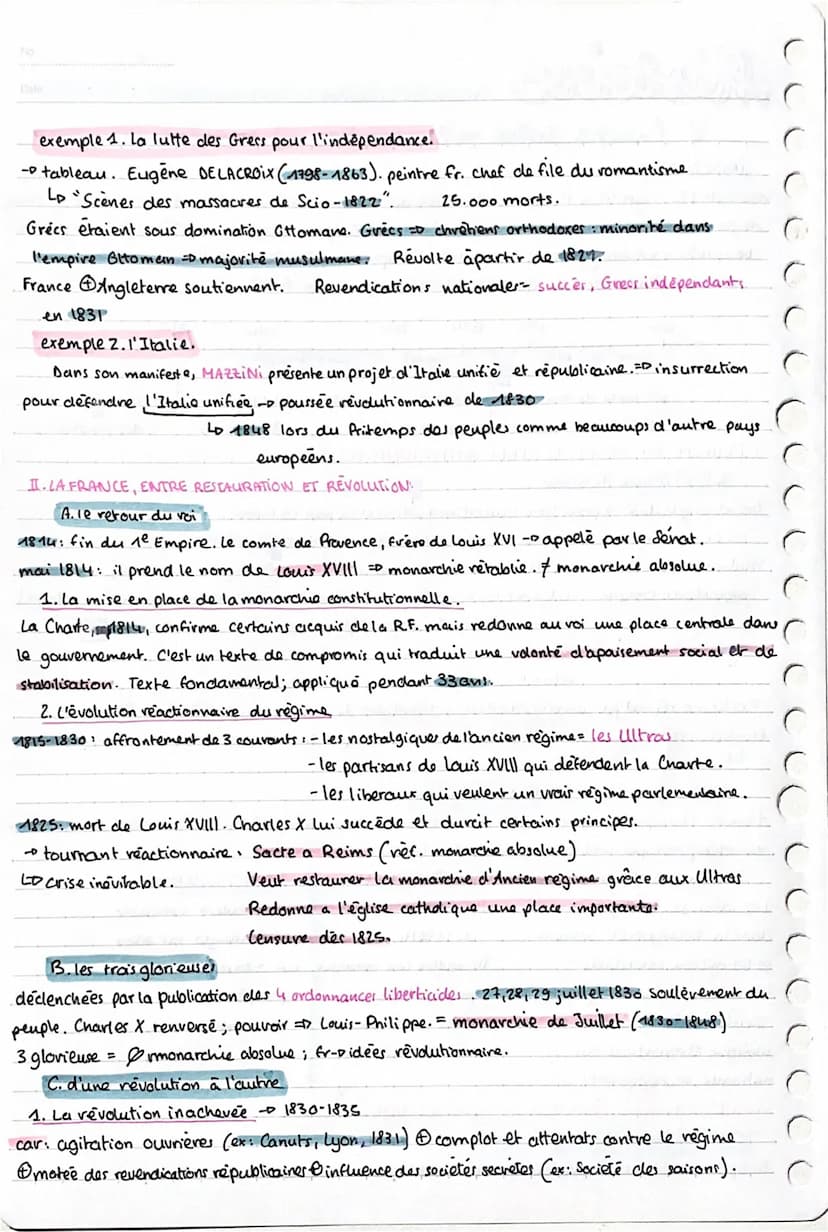 No
Date
exemple 1. La lutte des Grecs pour l'indépendance.
→ tableau. Eugène DELACROIX (1798-1863). peintre fr. chef de file du romantisme
↳ "Scènes des massacres de Scio-1822". 25.000 morts.
Grécs étaient sous domination Ottomane. Grècs => chrétiens orthodoxes : minorité dans
l'empire Ottoman => majorité musulmane. Révolte àpartir de 1821.
France ⊕ Angleterre soutiennent. Revendications nationales- succès, Grecs indépendants
en 1831
exemple 2. l'Italie.
Dans son manifeste, MAZZINI présente un projet d'Italie unifié et républicaine. => insurrection
pour défendre l'Italie unifiée → poussée révolutionnaire de 1830
↳ 1848 lors du Pritemps des peuples comme beaucoups d'autre pays
européens.
II. LA FRANCE, ENTRE RESTAURATION ET RÉVOLUTION.
A. le retour du roi
1814: fin du 1e Empire. Le comte de Provence, frère de Louis XVI → appelé par le Sénat.
mai 1814: il prend le nom de Louis XVIII => monarchie rétablie. ≠ monarchie absolue.
1. La mise en place de la monarchie constitutionnelle.
La Charte, 1814, confirme certains acquis de la R.F. mais redonne au roi une place centrale dans
le gouvernement. C'est un texte de compromis qui traduit une volonté d'apaisement social et de
stabilisation. Texte fondamental; appliqué pendant 33 ans.
2. L'évolution réactionnaire du régime
1815-1830 : affrontement de 3 courants : - les nostalgiques de l'ancien régime = les Ultras
- les partisans de Louis XVIII qui défendent la Charte.
- les liberaux qui veulent un vrai régime parlementaire.
1825: mort de Louis XVIII. Charles X lui succède et durcit certains principes.
→ tournant réactionnaire. Sacre a Reims (réf. monarchie absolue)
↳ crise inévitable. Veut restaurer la monarchie d'Ancien régime grâce aux Ultras
Redonne a l'église catholique une place importante.
Censure dès 1825.
B. les trois glorieuses
déclenchées par la publication des 4 ordonnances liberticides. 27, 28, 29 juillet 1830 soulèvement du
peuple. Charles X renversé ; pouvoir => Louis-Philippe. = monarchie de Juillet (1830-1848)
3 glorieuse = ∅ monarchie absolue ; fr → idées révolutionnaire.
C. d'une révolution à l'autre
1. La révolution inachevée → 1830-1835
car: agitation ouvrières (ex: Canuts, Lyon, 1831) ⊕ complot et attentats contre le régime
⊕ motée des revendications républicaines ⊕ influence des sociétés secrètes (ex: Société des saisons).